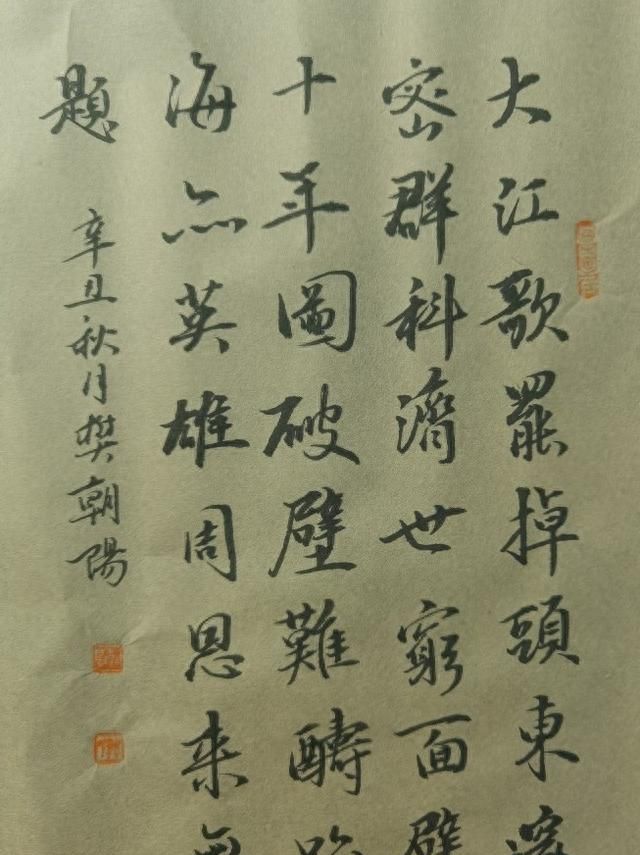 大江歌罷掉頭東
密群科濟世窮面
十年圖破壁難醻
海亦英雄周恩来
題
辛丑秋月樊朝陽